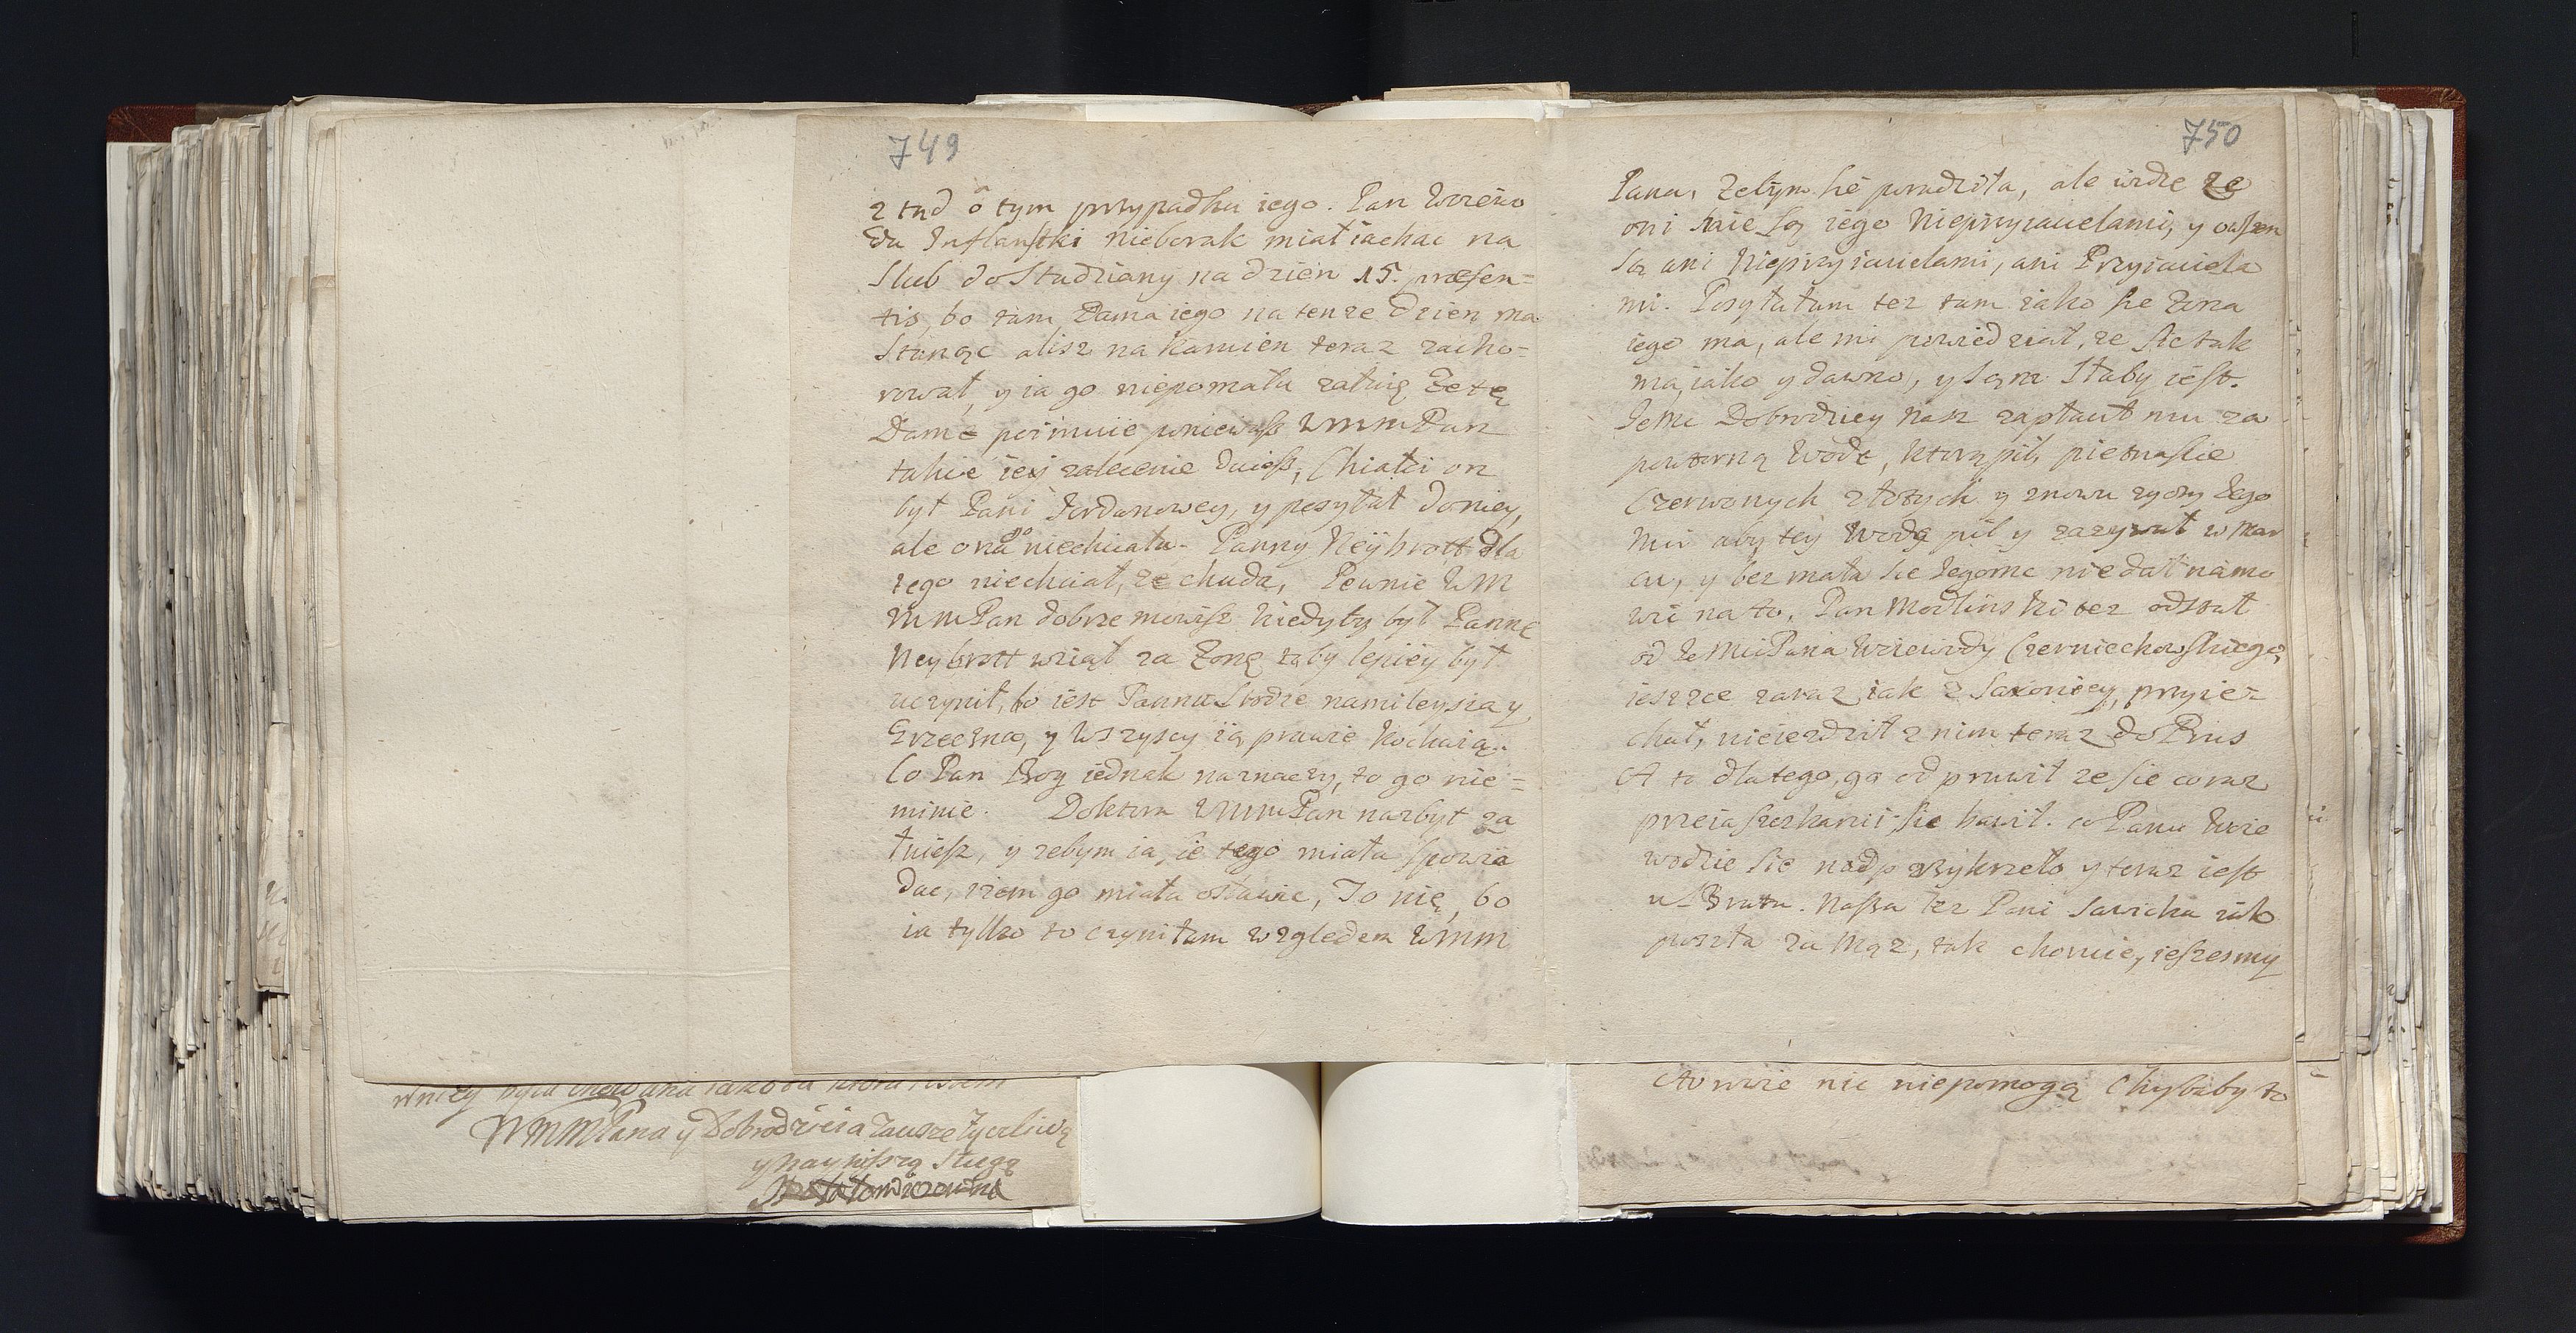 749
ztąd o tym przypadku iego. Pan Woiewo
da Inflanstki nieborak miał iachac na
Slub do Studziany na dzien 15. præsen=
tis, bo tam Dama iego na tenze dzien ma
Stanąc alisz na kamien teraz zacho=
rował, y ia go niepomału załuię ze tę
Dame poimuie poniewasz WMMPan
takie iey zalecenie daiesz, Chiałci on
był Pani Jordanowey, y posyłał do niey,
ale ona go niechciała. Panny Neybrott dla
tego niechciał, ze chuda, Pewnie WM
MMPan dobrze mowisz kiedyby był Pannę
Neybrott wziął za Zonę toby lepiey był
uczynił, bo iest Panna Srodze namileysza y
Grzeczna, y wszyscy ią prawie kochaią.
Co Pan Bog iednak naznaczy, to go nie=
minie. Doktora WMMPan nazbyt za
łuiesz, y zebym ia sie tego miała spowia
dac, ziem go miała osławic, To nie, bo
ia tylko to czyniłam względem WMM
750
Pana, Zebym sie poradziła, ale widze ze
oni nie są iego Nieprzyiacielami, y owszem
są ani Nieprzyiacielami, ani Przyiaciela
mi. Posyłałam tez tam iako sie Zona
iego ma, ale mi powiedział, ze sie tak
ma, iako y dawno, y sam słaby iest.
JeMc Dobrodziey nasz zapłacił mu za
powtorną wodę, ktorą pił, pietnascie
Czerwonych złotych y znowu zyczy Jego
Mci aby tey wody pił y zazywał w Mar
cu, y bez mała sie Jegomc nie dał namo
wic na to. Pan Modlinski tez odstał
od JeMci Pana Woiewody Czerniechowskiego,
ieszcze zaraz iak z Saxoniey, przyie=
chał, nieiezdził z nim teraz do Prus
A to dlatego, go odprawił ze sie coraz
przeiaszczkami sie bawił. co Panu Woie
wodzie sie nadprzykrzeło y teraz iest
u Brata. Nasza tez Pani Sawicka iako
poszła za Mąz, tak choruie, ieszesmy
wniey była chowana iakoba ktora iestem
WMMPana y Dobrodzieia zawsze zyczliwą
y nayniszą Sługą
nic niepomogą Chybaby to